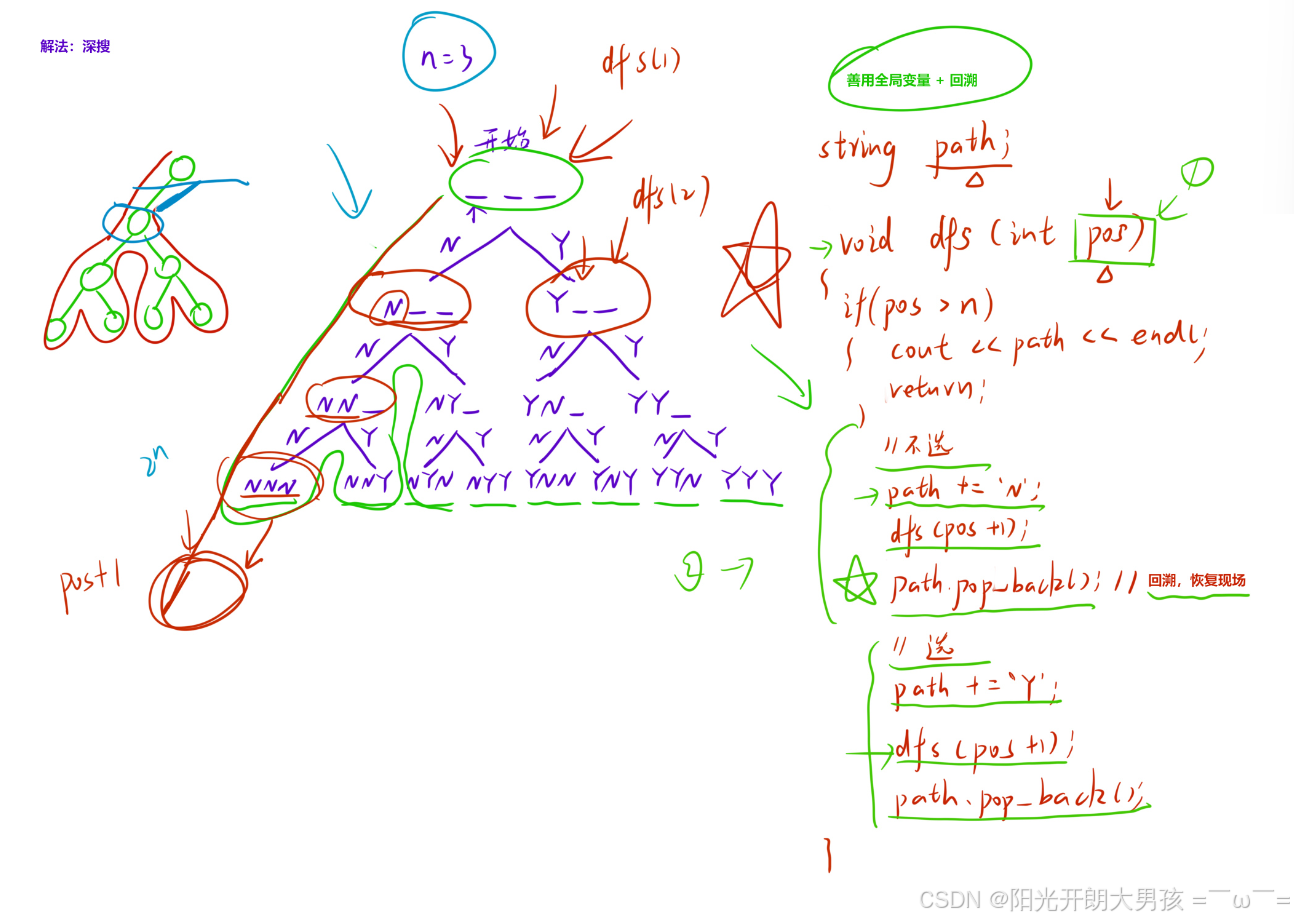 解法：深搜
n=3
dfs(1)
开始
_ _ _
dfs(2)
N Y
N _ _ Y _ _
N Y N Y
NN _ NY _ YN _ YY _
N Y N Y N Y N Y
NNN NNY NYN NYY YNN YNY YYN YYY
2^n
pos+1
② →
善用全局变量 + 回溯
string path;
①
void dfs (int pos)
{
if(pos > n)
{ cout << path << endl;
return;
}
// 不选
path += 'N';
dfs(pos+1);
path.pop_back(); // 回溯，恢复现场
// 选
path += 'Y';
dfs(pos+1);
path.pop_back();
}
CSDN @阳光开朗大男孩 =￣ω￣=